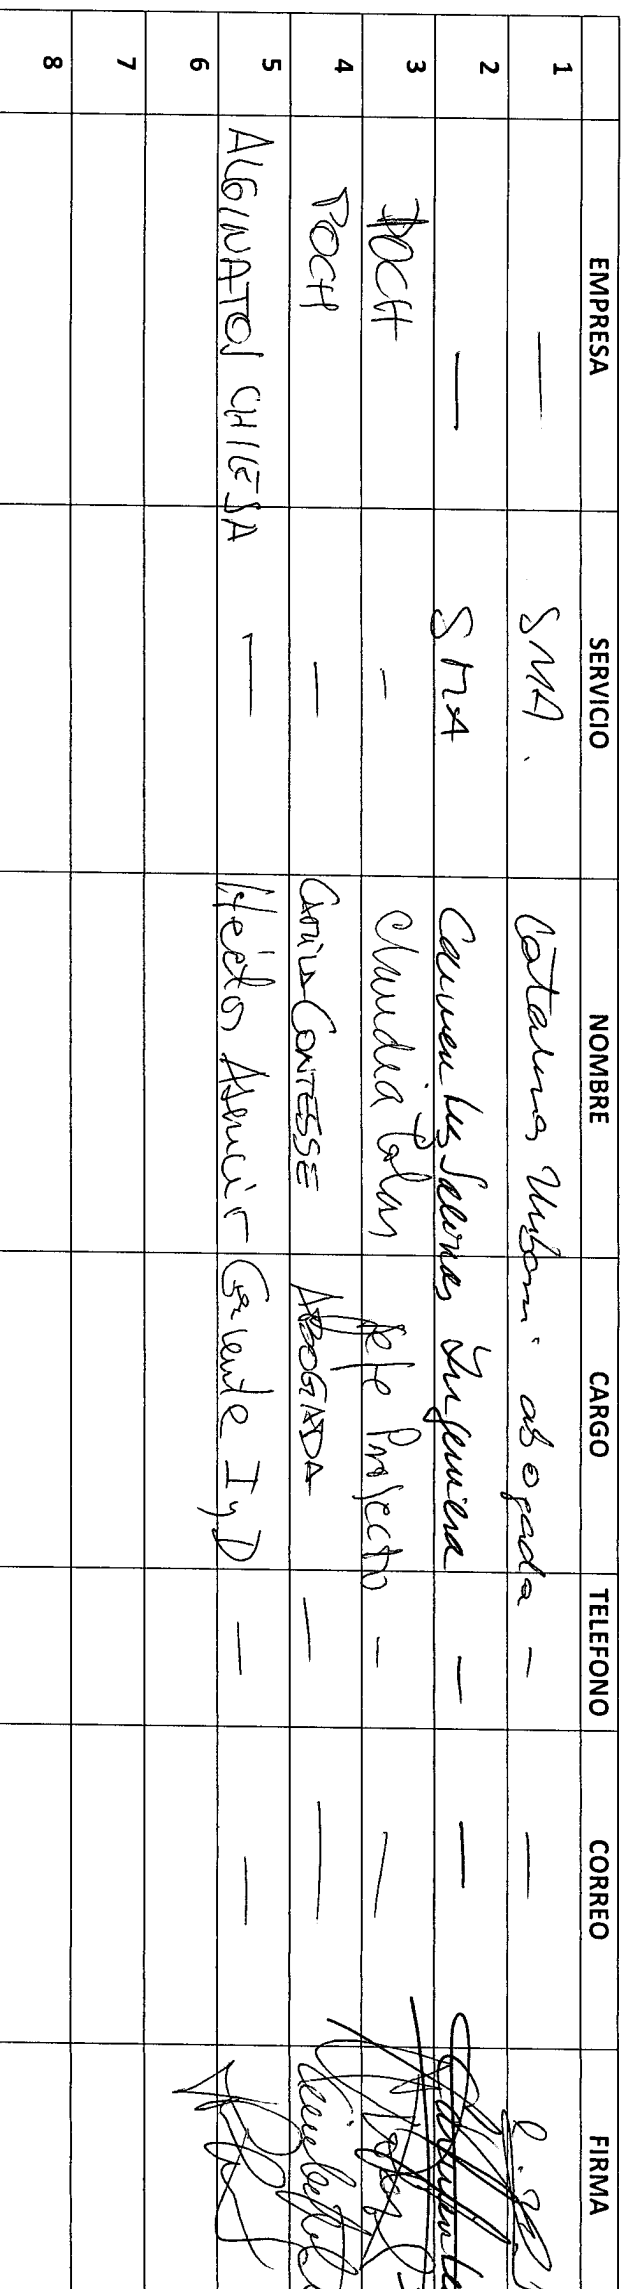 EMPRESA SERVICIO NOMBRE CARGO TELEFONO CORREO FIRMA
1 — SMA. Catalina Uribarri abogada — —
2 — SMA Carmen Luz Salinas Ingeniera — —
3 POCH - Claudia Jefe Proyecto - —
4 POCH — Camila CONTESSE ABOGADA — —
5 ALGINATOS CHILE SA — Héctor Gerente I y D — —
6
7
8